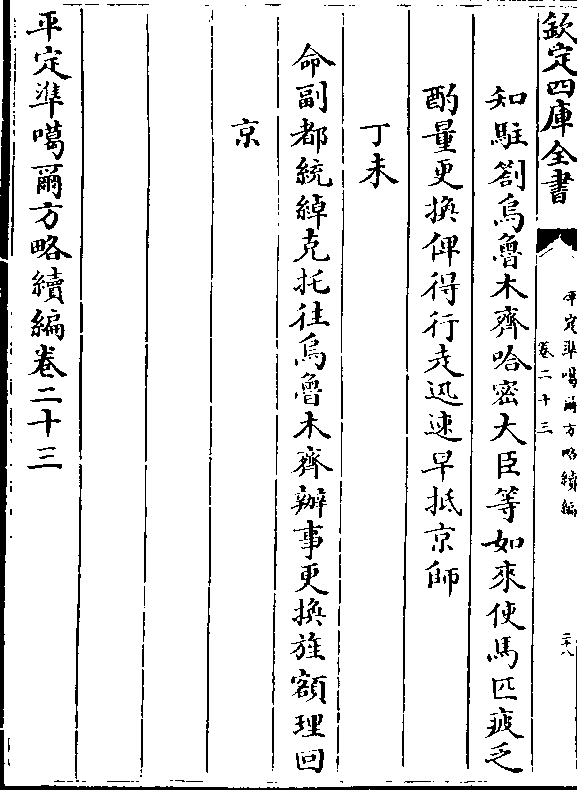 欽定四庫全書
平定準噶爾方略續編
卷二十三
二十八
知駐劄烏魯木齊哈密大臣等如來使馬匹疲乏
酌量更換俾得行走迅速早抵京師
丁未
命副都統綽克托往烏魯木齊辦事更換旌額理回
京
平定準噶爾方略續編卷二十三